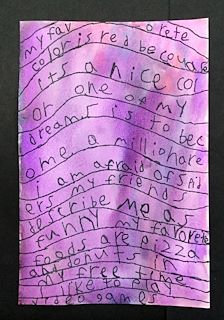 my fav orete
color is red becouase
its a nice col
or one of my
dreams is to bec
ome a millionare
i am afraid of snd
ers my friends
describe me as
funny my favorete
foods are pizza
and donuts in
my free time
i like to play
video games